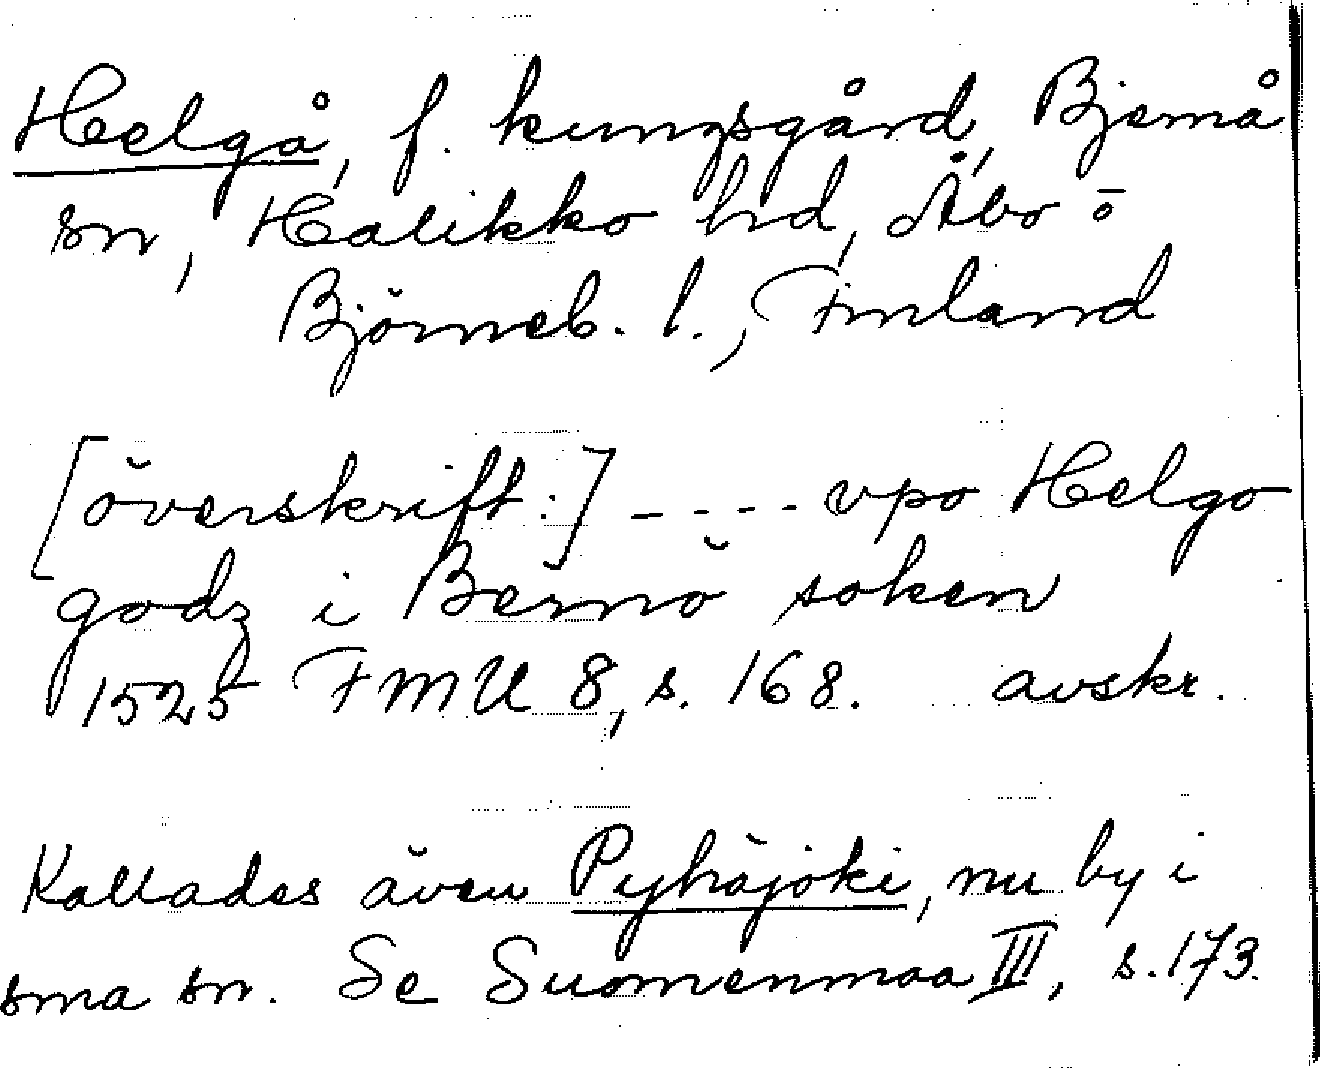 Helgå, f. kungsgård, Bjernå
sn, Halikko hd, Åbo o
Björneb. l., Finland
[överskrift:] ---- vpo Helgo
godz i Bernö soken
1525 FMU 8, s. 168. avskr.
Kallades även Pyhäjoki, nu by i
sma sn. Se Suomenmaa III, s. 173.